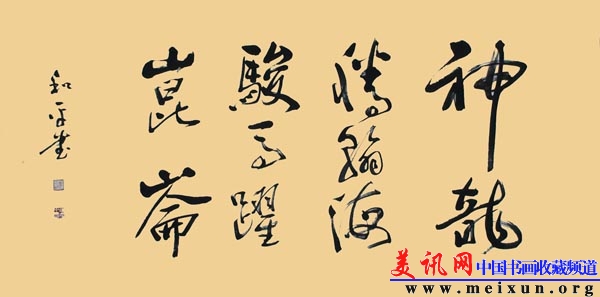 神龍
騰翰海
駿馬躍
崑崙
平書
美讯网 中国书画收藏频道
www.meixun.org